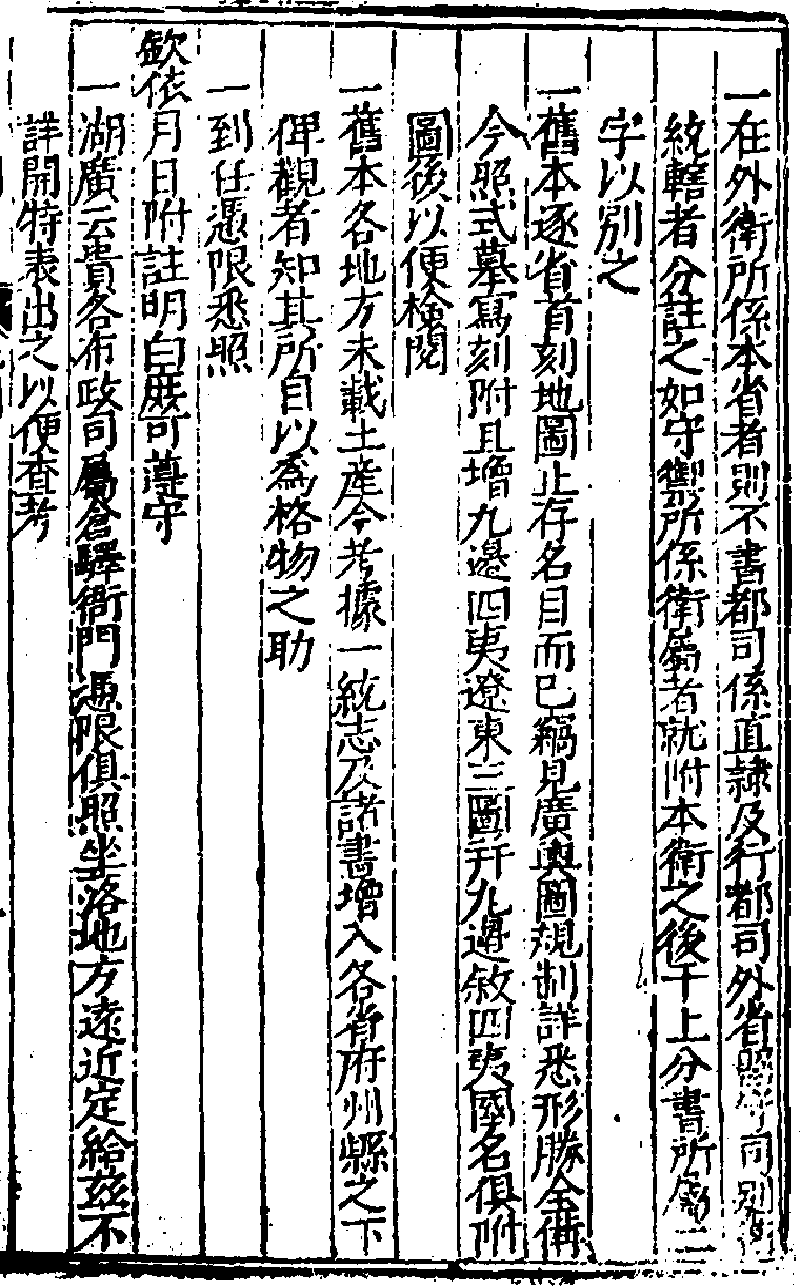 一在外衛所係本省者則不書都司係直隸及行都司外省
統轄者分註之如守禦所係衛屬者就附本衛之後干上分書所屬二
字以別之
一舊本逐省首刻地圖止存名目而已竊見廣輿圖規制詳悉形勝全備
今照式摹寫刻附且增九邊四夷遼東三圖幷九邊敘四夷國名俱附
圖後以便檢閱
一舊本各地方未載土產今考據一統志及諸書增入各省府州縣之下
俾觀者知其所自以爲格物之助
一到任憑限悉照
欽依月日附註明白庶可遵守
一湖廣云貴各布政司屬倉驛衙門憑限俱照坐落地方遠近定給玆不
詳開特表出之以便查考